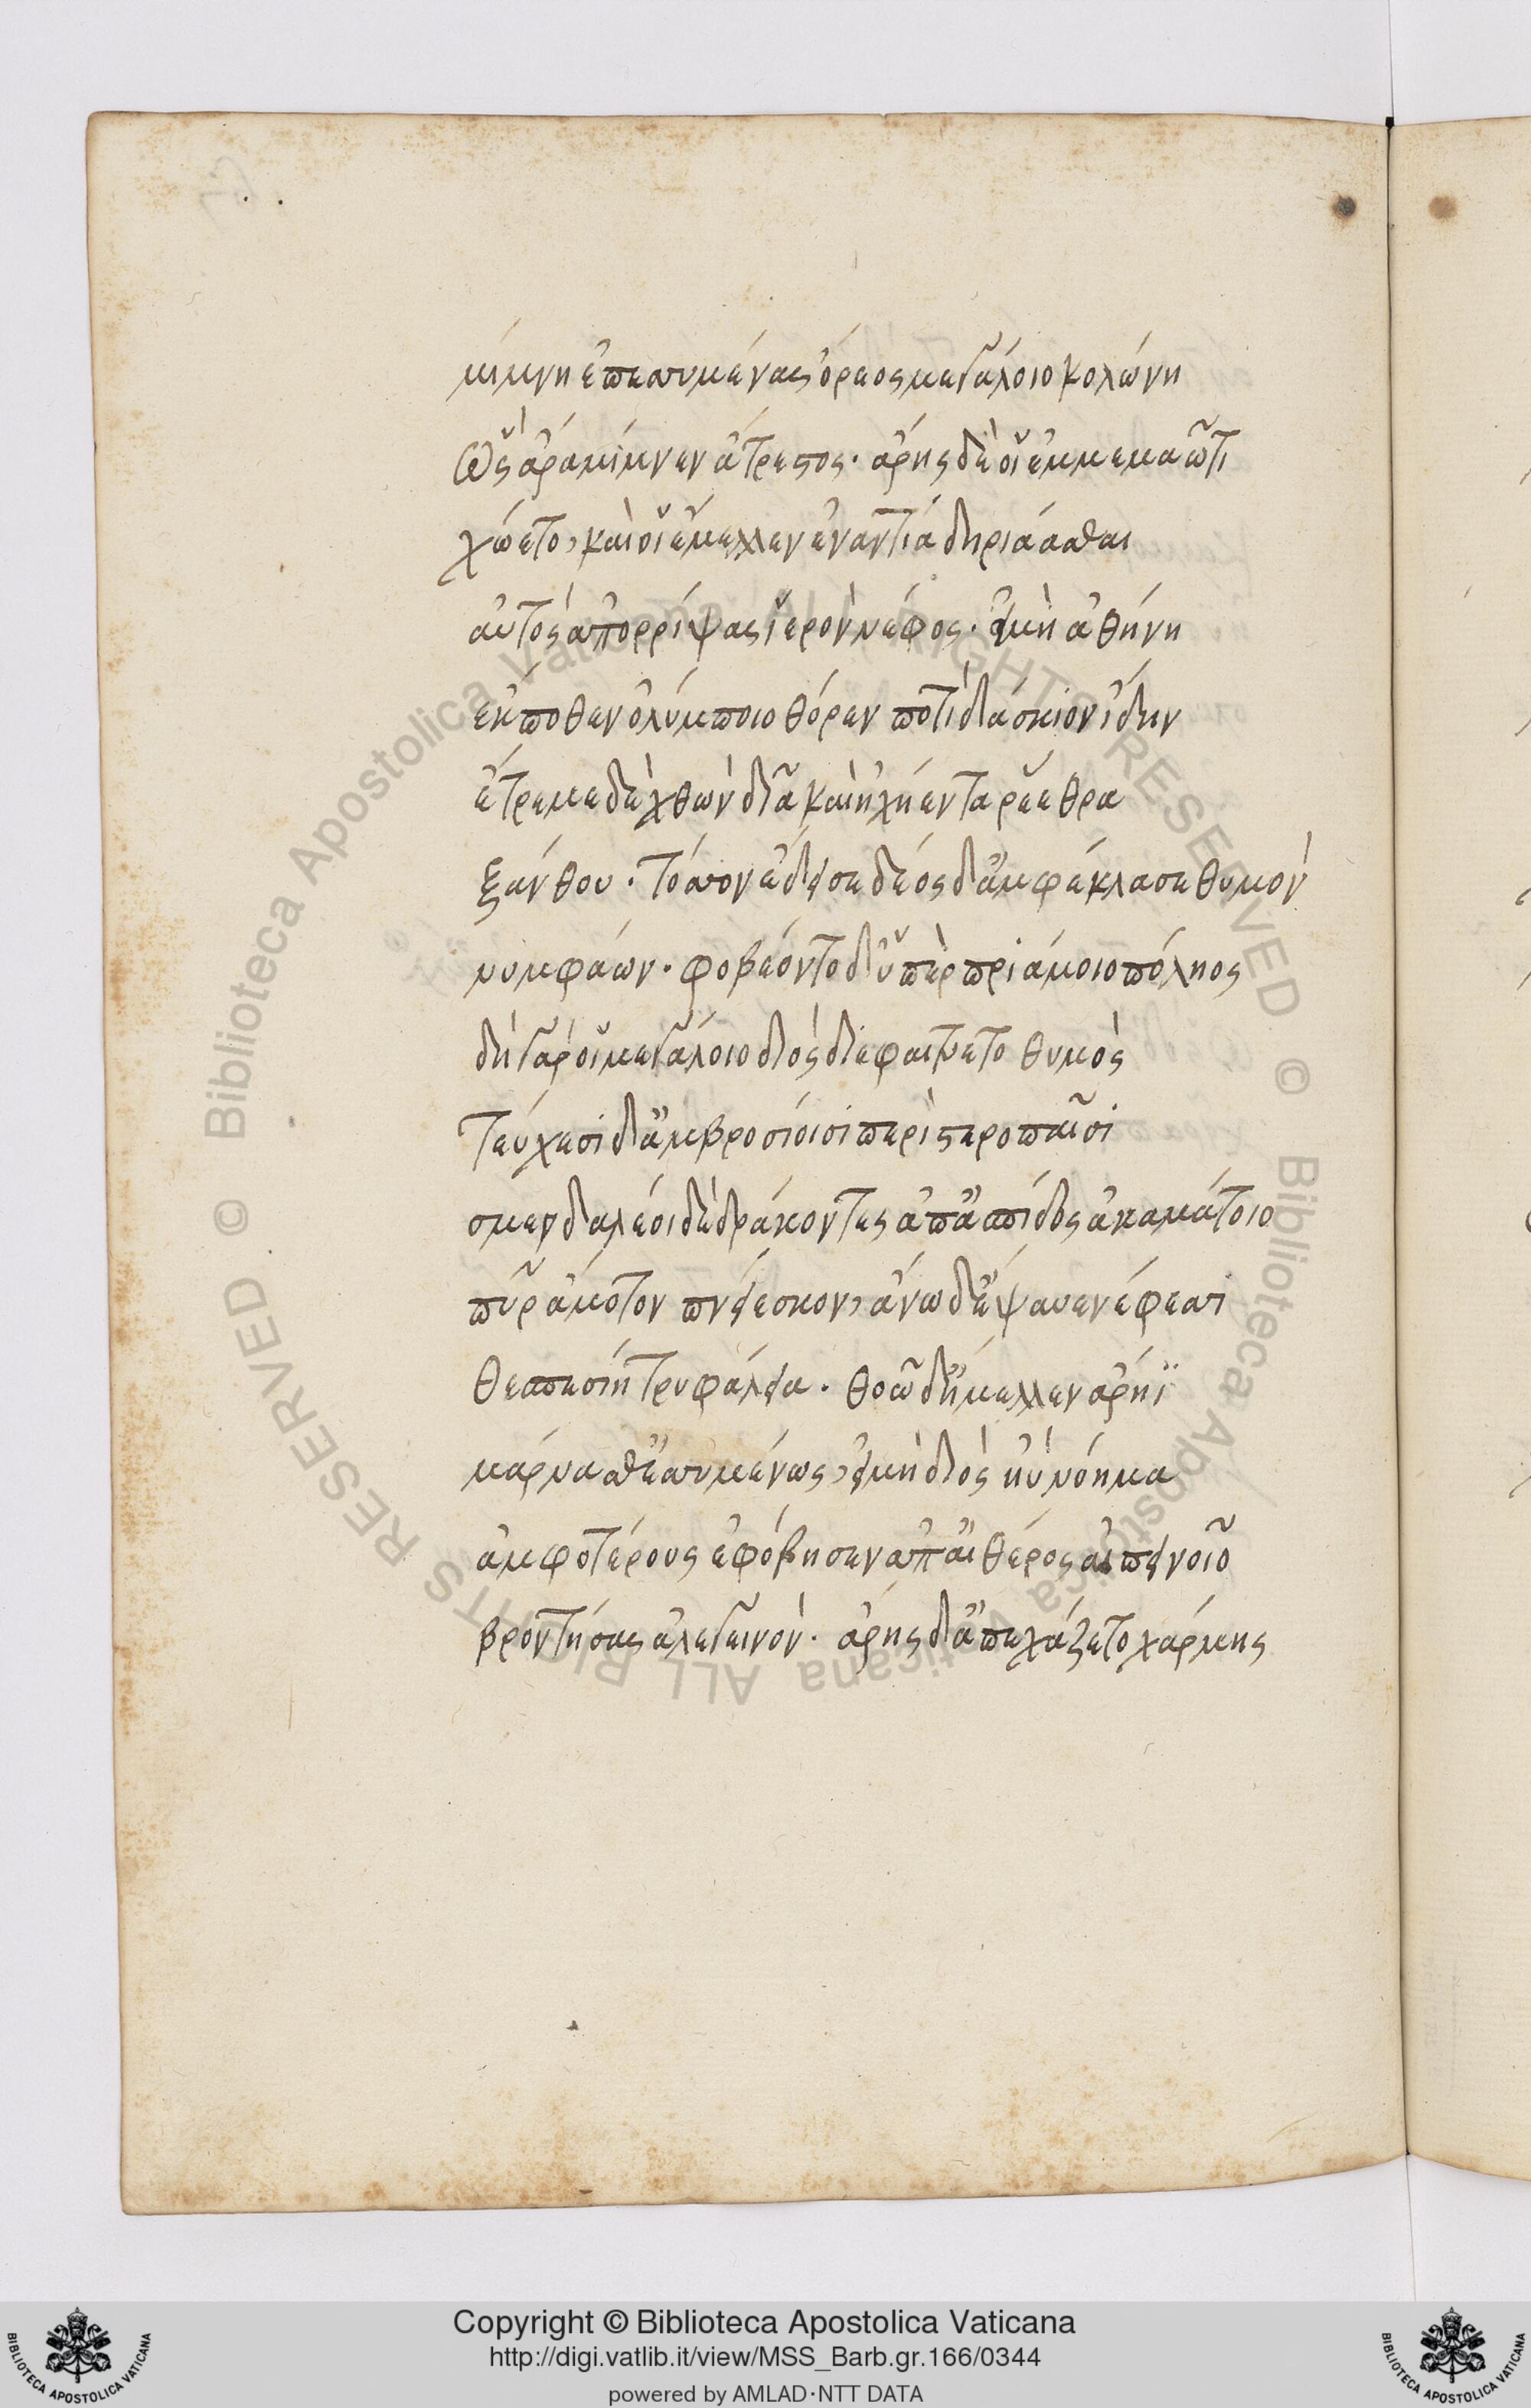 μίμνη ἐπεσυμένας ὄρεος μεγάλοιο κολώνη
ὣς ἄρα μίμνεν ἄτρεστος. ἄρης δέ οἱ ἐμμεμαῶτι
χώετο, καί οἱ ἔμελλεν ἐναντία δηριάασθαι
αὐτὸς ἀπορρίψας ἱερὸν νέφος. εἰ μὴ ἀθήνη
ἔκποθεν ὀλύμποιο θόρεν ποτὶ δάσκιον ἴδην
ἔτρεμε δὲ χθὼν δῖα καὶ ἠχήεντα ῥέεθρα
ξάνθου. τόσσον ἔδεισε δέος δ' ἀμφέκλασε θυμὸν
νυμφάων. φοβέοντο δ' ὑπὲρ πριάμοιο πόληος
δὴ γάρ οἱ μεγάλοιο διὸς διεφαίνετο θυμὸς
τεύχεσι δ' ἀμβροσίοισι περὶ στεροπαῖσι
σμερδαλέοι δὲ δράκοντες ἀπ' ἀσπίδος ἀκαμάτοιο
πῦρ ἄμοτον πνείεσκον, ἄνω δ' ἔψαυε νέφεσσι
θεσπεσίη τρυφάλεια. θοῷ δ' ἤμελλεν ἄρηϊ
μάρνασθ' ἐσσυμένως, εἰ μὴ διὸς ἠῢ νόημα
ἀμφοτέρους ἐφόβησεν ἀπ' αἰθέρος αἰπεινοῖο
βροντήσας ἀλεγεινὸν. ἄρης δ' ἀπεχάζετο χάρμης
Copyright © Biblioteca Apostolica Vaticana
http://digi.vatlib.it/view/MSS_Barb.gr.166/0344
powered by AMLAD·NTT DATA